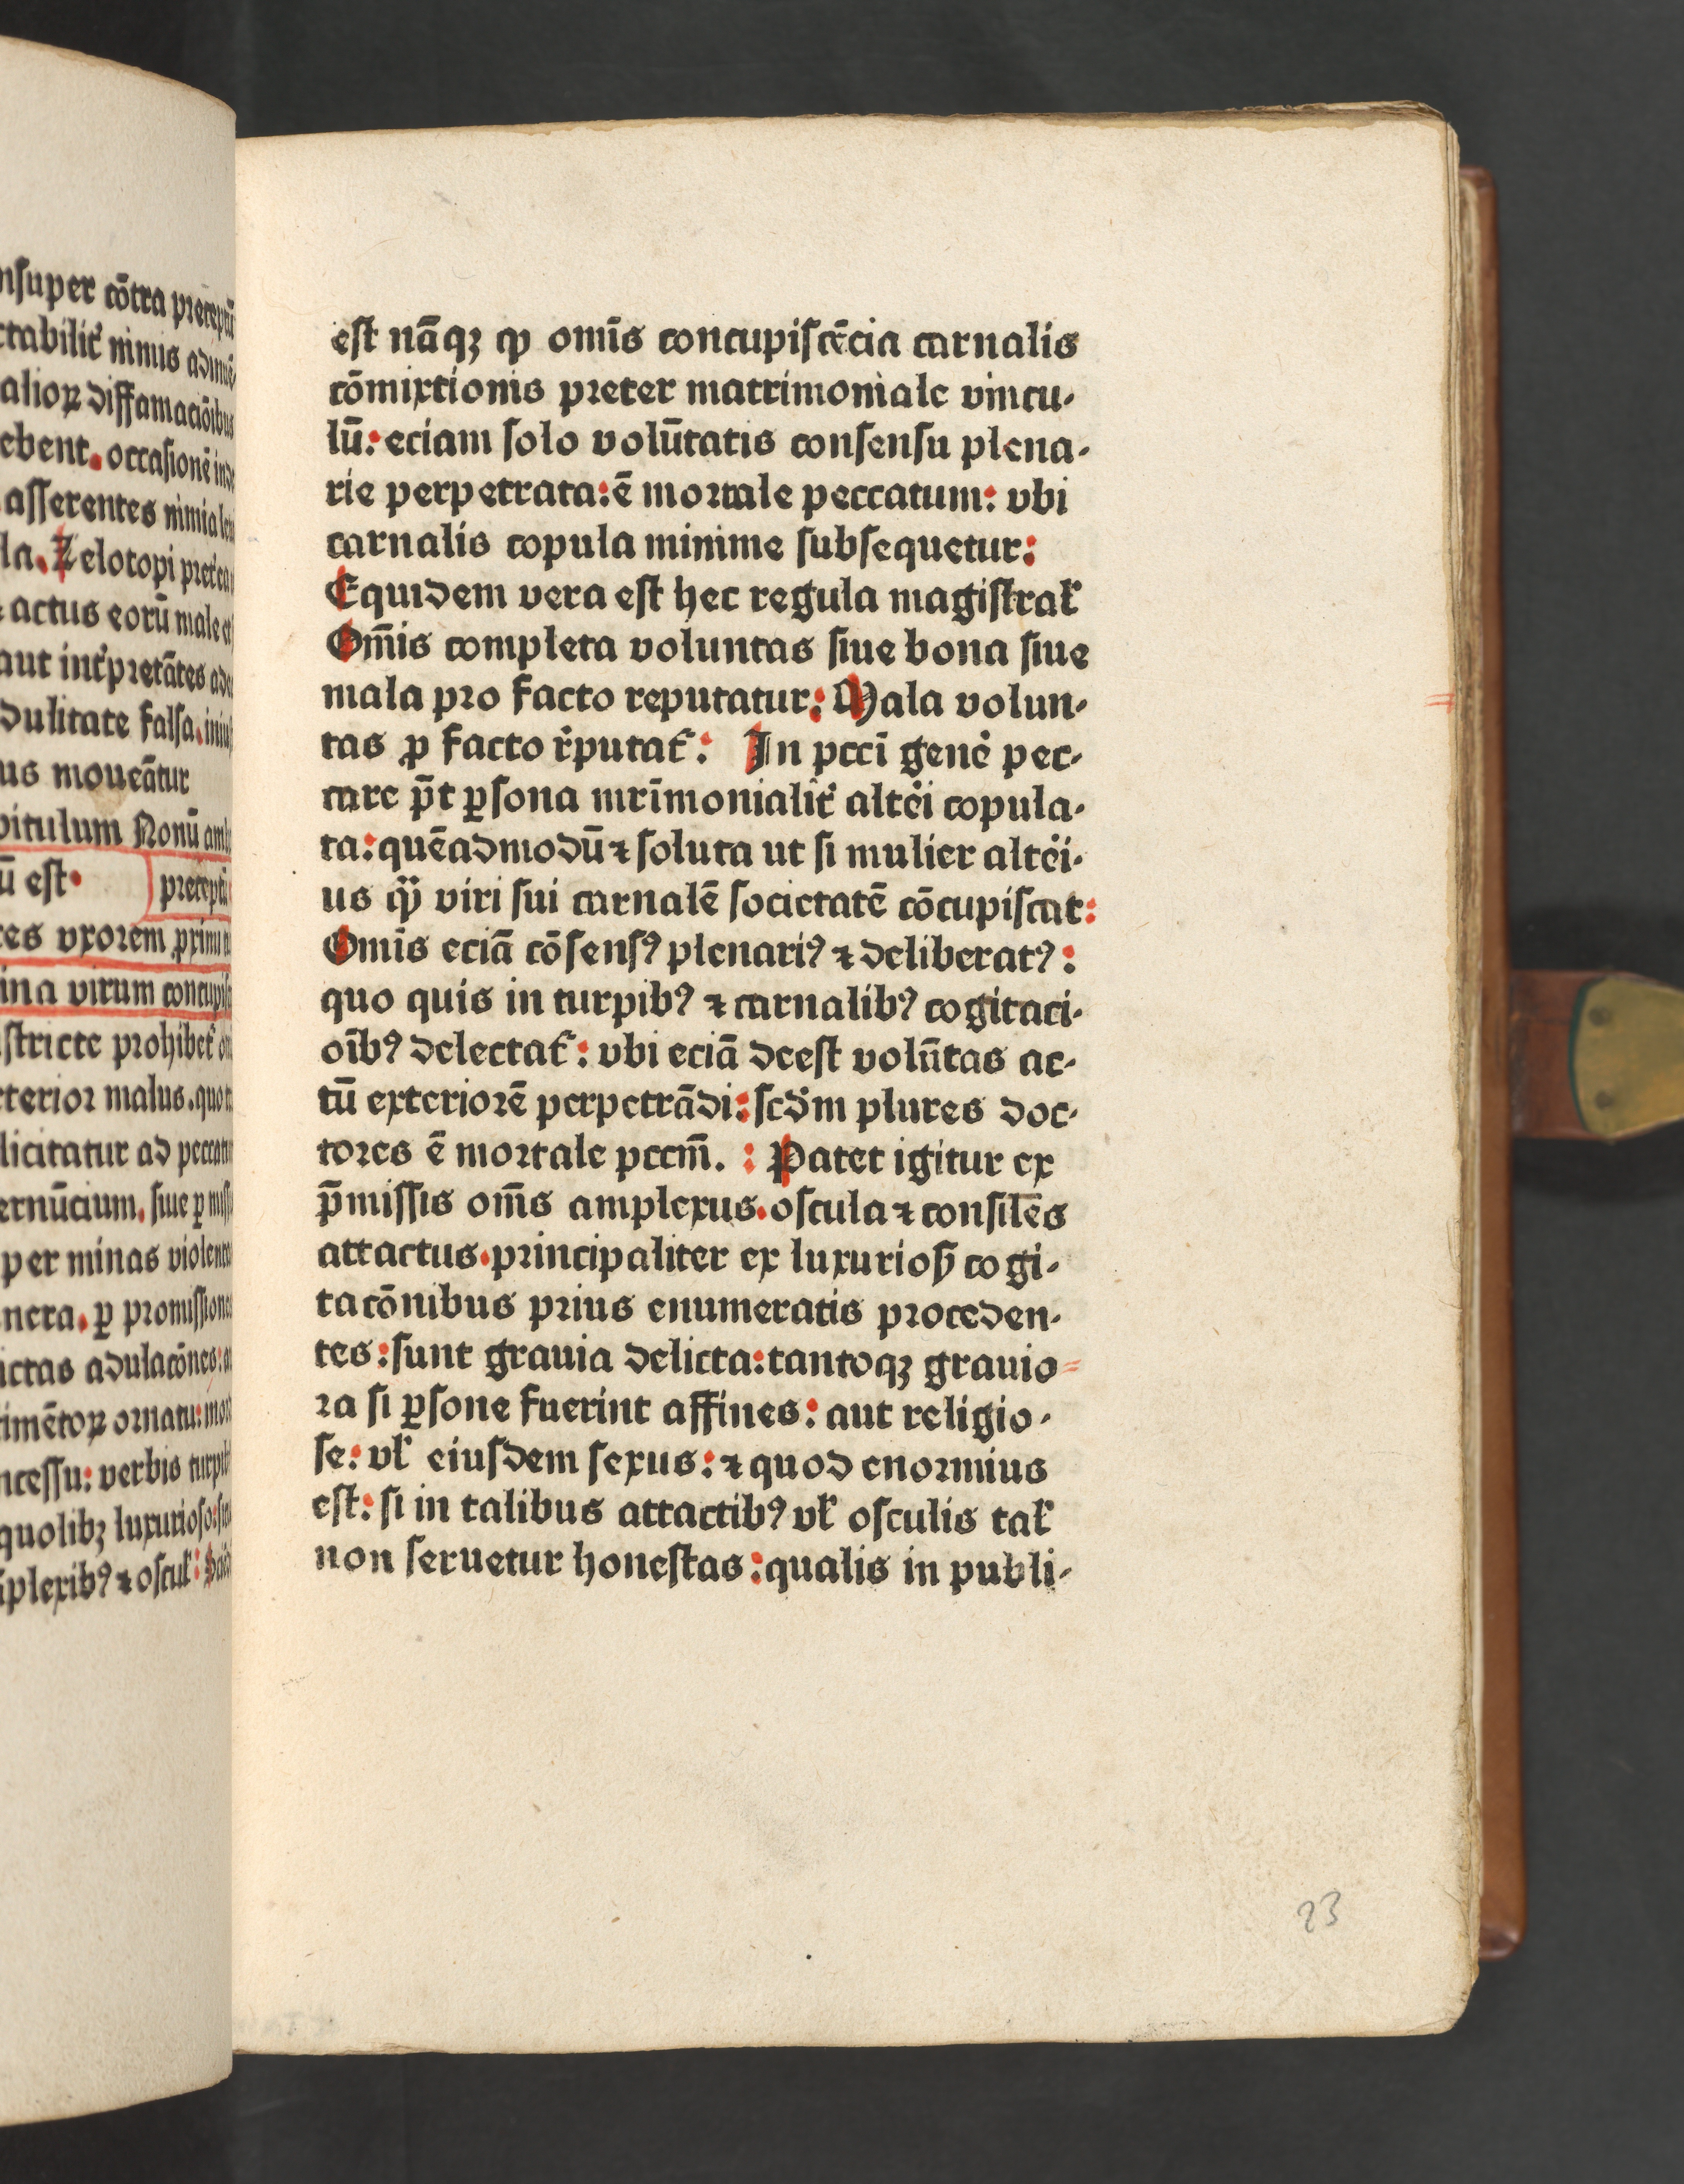 nsuper cōtra preceptū
ctabilit᷑ nimis adinuē
alioꝝ diffamaciōibus
ebent. occasionē inde
asserentes nimia leui
la. Zelotopi pret᷑ea
actus eorū male
aut int᷑pretātes
dulitate falsa. iniu
us moueātur
pitulum Nonū
ū est. preceptū
tes vxorem ꝓximi
ina virum concupis
stricte prohibet᷑
terior malus. quo
licitatur ad peccatū
ernūcium. siue ꝑ
per minas violent
nera. ꝑ promissione
ictas adulacōnes:
imētoꝝ ornatu: mo
ncessu: verbis turpib
quolibꝫ luxurioso:
iplexibꝰ ⁊ oscul:
est nāqꝫ ꝙ omīs concupiscēcia carnalis
cōmixtionis preter matrimoniale vincu-
lū: eciam solo volūtatis consensu plena-
rie perpetrata: ē mortale peccatum: vbi
carnalis copula minime subsequetur:
Equidem vera est hec regula magistral̓
Om̄is completa voluntas siue bona siue
mala pro facto reputatur: Mala volun-
tas ꝓ facto r̄putat᷑: In pcci gen̄e pec-
care p̄t ꝑsona mr̄imonialit᷑ alt᷑i copula-
ta: quēadmodū ⁊ soluta ut si mulier alt᷑i-
us qͣꝫ viri sui carnalē societatē cōcupiscat:
Omīs eciā cōsensꝰ plenariꝰ ⁊ deliberatꝰ:
quo quis in turpibꝰ ⁊ carnalibꝰ cogitaci-
oībꝰ delectat᷑: vbi eciā deest volūtas ac-
tū exteriorē perpetrādi: scd̄m plures doc-
tores ē mortale pccm̄. : Patet igitur ex
p̄missis om̄s amplexus. oscula ⁊ consilēs
attactus. principaliter ex luxurioꝭ cogi-
tacōnibus prius enumeratis proceden-
tes: sunt grauia delicta: tantoqꝫ grauio=
ra si ꝑsone fuerint affines: aut religio-
se: vl̓ eiusdem sexus: ⁊ quod enormius
est: si in talibus attactibꝰ vl̓ osculis tal̓
non seruetur honestas: qualis in publi-
23